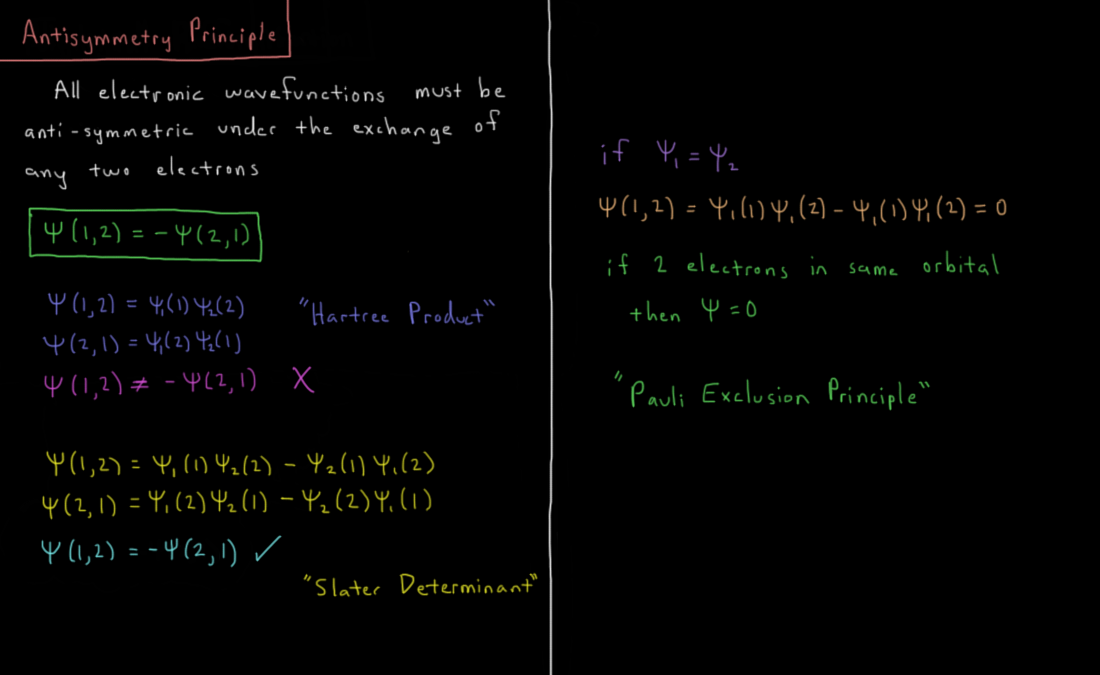 Antisymmetry Principle
All electronic wavefunctions must be
anti-symmetric under the exchange of
any two electrons
Ψ(1,2) = -Ψ(2,1)
Ψ(1,2) = Ψ₁(1)Ψ₂(2) "Hartree Product"
Ψ(2,1) = Ψ₁(2)Ψ₂(1)
Ψ(1,2) ≠ -Ψ(2,1) X
Ψ(1,2) = Ψ₁(1)Ψ₂(2) - Ψ₂(1)Ψ₁(2)
Ψ(2,1) = Ψ₁(2)Ψ₂(1) - Ψ₂(2)Ψ₁(1)
Ψ(1,2) = -Ψ(2,1) ✓
"Slater Determinant"
if Ψ₁ = Ψ₂
Ψ(1,2) = Ψ₁(1)Ψ₁(2) - Ψ₁(1)Ψ₁(2) = 0
if 2 electrons in same orbital
then Ψ = 0
"Pauli Exclusion Principle"